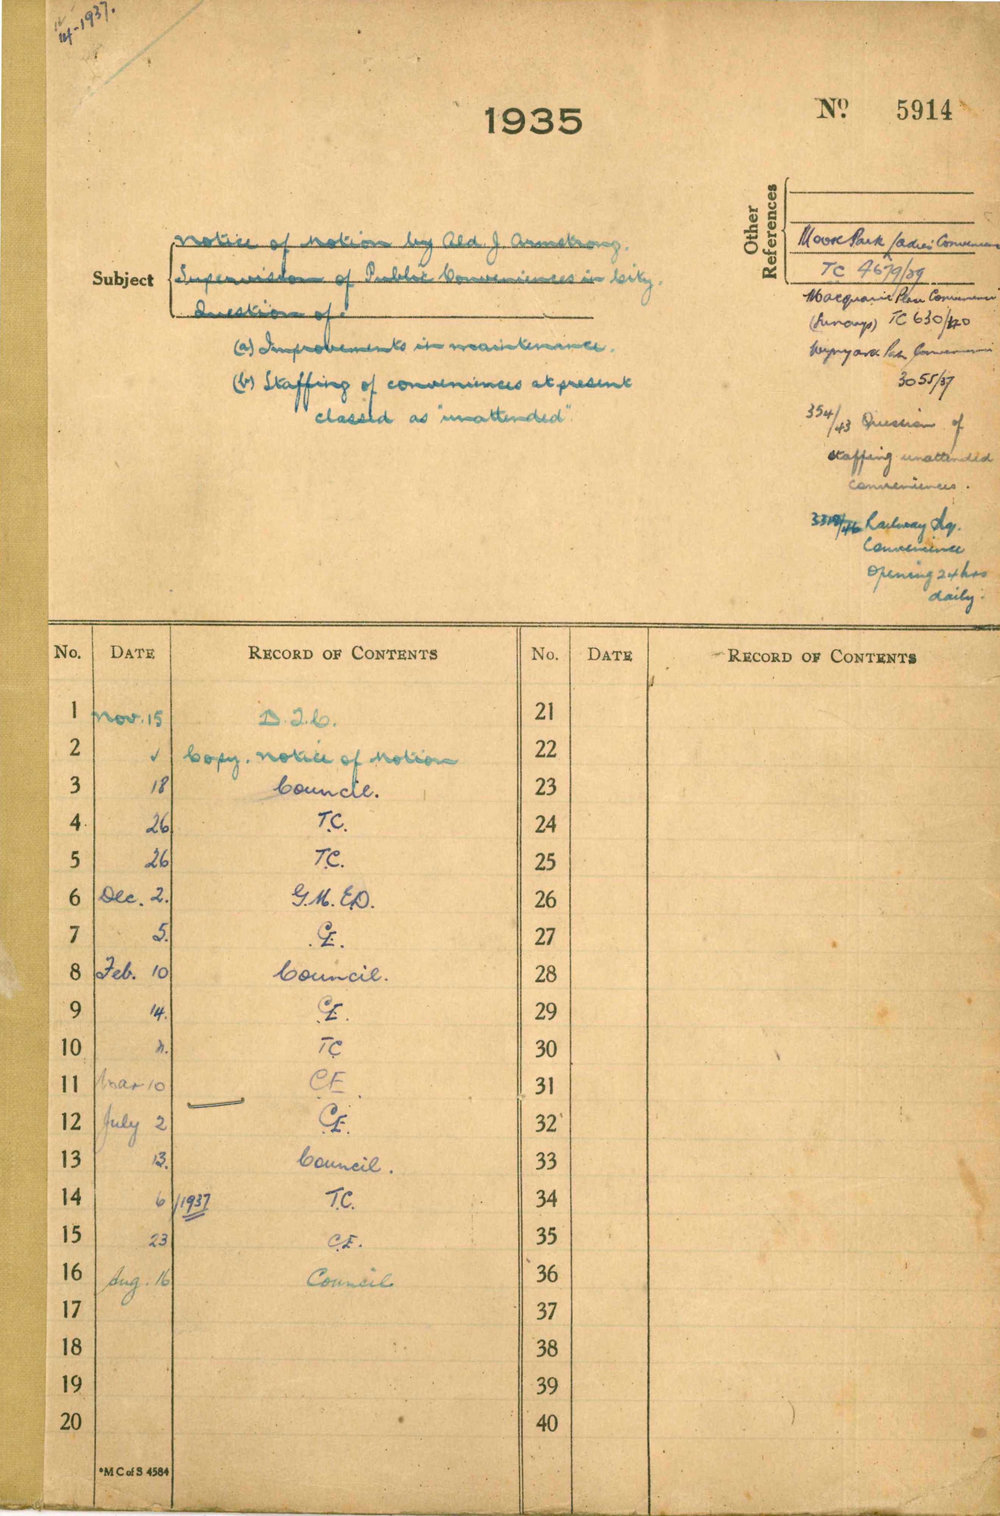 1937.
1935
No. 5914
Other References
Moore Park Ladies' Convenience
TC 4679/39
Macquarie Place Convenience
TC 630/40
Wynyard Park Convenience
3055/37
354/43 Question of
staffing unattended
conveniences.
Railway Sq.
Convenience
Opening 24 hrs
daily.
Subject
Notice of Motion by Ald. J. Armstrong.
Supervision of Public Conveniences in City.
Question of:
(a) Improvements in maintenance.
(b) Staffing of conveniences at present
classed as "unattended".
No. DATE RECORD OF CONTENTS
1 Nov. 15 D.T.C.
2 Copy. Notice of Motion
3 18 Council.
4 26 T.C.
5 26 T.C.
6 Dec. 2. G.M.E.D.
7 5. C.E.
8 Feb. 10 Council.
9 14. C.E.
10 TC
11 Mar 10 C.E.
12 July 2 C.E.
13 13. Council.
14 6/1937 T.C.
15 23 C.E.
16 Aug. 16 Council
17
18
19
20
*M C of S 4584
No. DATE RECORD OF CONTENTS
21
22
23
24
25
26
27
28
29
30
31
32
33
34
35
36
37
38
39
40